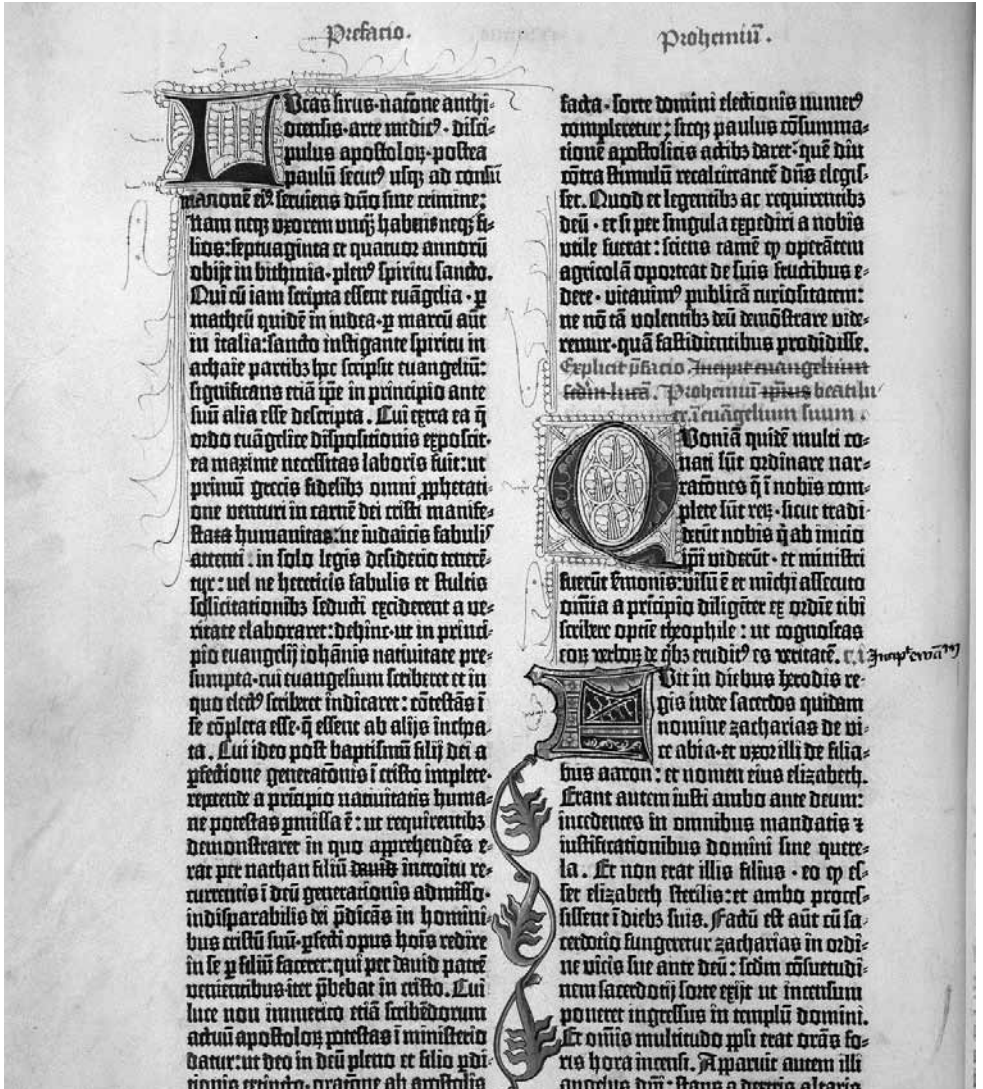 Prefacio.
Prohemiū.
LUcas sirus·natōne anthi⸗
ocensis·arte medicꝰ·disci⸗
pulus apostoloꝝ·postea
paulū secutꝰ usqꝫ ad confessi
onē eiꝰ seruiens dño sine crimine:
Nam neqꝫ uxorem unqꝫ habens neqꝫ fi⸗
lios: septuaginta et quatuor annorū
obijt in bithinia·plenꝰ spiritu sancto.
Qui cū iam scripta essent euāgelia·ꝑ
matheū quidē in iudea·ꝑ marcū aūt
in italia: sancto instigante spiritu in
achaie partibꝫ hoc scripsit euangeliū:
significans etiā ip̄e in principio ante
suū alia esse descripta. Cui extra ea q̄
ordo euāgelice dispositionis exposcit·
ea maxime necessitas laboris fuit: ut
primū grecis fidelibꝫ omni ꝓphetati⸗
one venturi in carnē dei cristi manife⸗
stata humanitas: ne iudaicis fabulis
attenti: in solo legis desiderio tenerē⸗
tur: uel ne hereticis fabulis et stultis
sollicitationibꝫ seducti exciderent a ve⸗
ritate elaboraret: dehinc·ut in princi⸗
pio euangelij iohānis natiuitate pre⸗
sumpta·cui euangelium scriberet et in
quo electꝰ scriberet indicaret: cōtestās ī
se cōpleta esse·q̄ essent ab alijs inchoa⸗
ta. Cui ideo post baptismū filij dei a
ꝑfectione generatōnis ī cristo implete·
repetende a prīcipio natiuitatis huma⸗
ne potestas ꝑmissa ē: ut requirentibꝫ
demonstraret in quo apprehendēs e⸗
rat per nathan filiū dauid introitu re⸗
currentis ī deū generationis admisso·
indisparabilis dei p̄dicās in homini⸗
bus cristū suū·ꝑfecti opus hoīs redire
in se ꝑ filiū faceret: qui per dauid patrē
venientibus iter p̄bebat in cristo. Cui
luce non immerito etiā scribēdorum
actuū apostoloꝝ potestas ī ministerio
datur: ut deo in deū pleno et filio ꝑdi⸗
tionis extincto·oratōne ab apostolis
facta·sorte domini electionis numerꝰ
compleretur: sicqꝫ paulus cōsumma⸗
tionē apostolicis actibꝫ daret·quē diu
cōtra stimulū recalcitrantē dñs elegis⸗
set. Quod et legentibꝫ ac requirentibꝫ
deū·et si per singula expediri a nobis
utile fuerat: sciens tamē ꝙ operātem
agricolā oporteat de suis fructibus e⸗
dere·vitauimꝰ publicā curiositatem:
ne nō tā volentibꝫ deū demōstrare vide⸗
remur·quā fastidientibus prodidisse.
Explicit p̄facio. Incipit euangelium
scd̄m lucā. Prohemiū ip̄ius beati lu
ce.ī euāgelium suum.
QUoniā quidē multi co⸗
nati sūt ordinare nar⸗
ratōnes q̄ ī nobis com⸗
plete sūt reꝝ·sicut tradi⸗
derūt nobis q̄ ab inicio
ip̄i viderūt·et ministri
fuerūt s̄monis: visū ē et michi assecuto
om̄ia a prīcipio diligēter ex ordīe tibi
scribere optīe theophile: ut cognoscas
eoꝝ verboꝝ de qībꝫ eruditꝰ es veritatē. c.i.
Incipit ewā
FUit in diebus herodis re⸗
gis iudee sacerdos quidam
nomine zacharias de vi⸗
ce abia·et uxor illi de filia⸗
bus aaron: et nomen eius elizabeth.
Erant autem iusti ambo ante deum:
incedentes in omnibus mandatis ⁊
iustificationibus domini sine quere⸗
la. Et non erat illis filius·eo ꝙ es⸗
set elizabeth sterilis: et ambo proces⸗
sissent ī diebꝫ suis. Factū est aūt cū sa⸗
cerdotio fungeretur zacharias in ordi⸗
ne vicis sue ante deū: scd̄m cōsuetudi⸗
nem sacerdotij sorte exijt ut incensum
poneret ingressus in templū domini.
Et om̄is multitudo ppl̄i erat orās fo⸗
ris hora incensi. Apparuit autem illi
angelus dn̄i: stans a dextris altaris